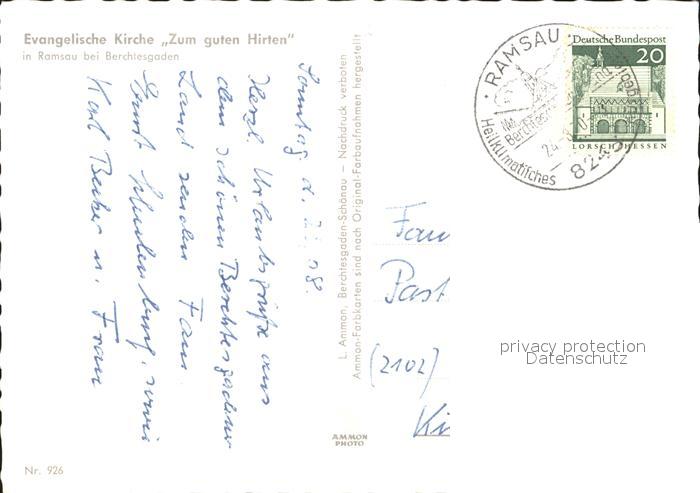 Evangelische Kirche „Zum guten Hirten"
in Ramsau bei Berchtesgaden
Sonntag d.
Herzl. Urlaubsgrüße aus
dem schönen Berchtesgadener
Land senden Fam.
Ernst
Karl Becker u. Frau
L. Ammon, Berchtesgaden-Schönau – Nachdruck verboten
Ammon-Farbkarten sind nach Original-Farbaufnahmen hergestellt
AMMON
PHOTO
Nr. 926
RAMSAU
Heilklimatisches
Deutsche Bundespost
20
LORSCH HESSEN
Fam
Past
(2102)
Ki
privacy protection
Datenschutz